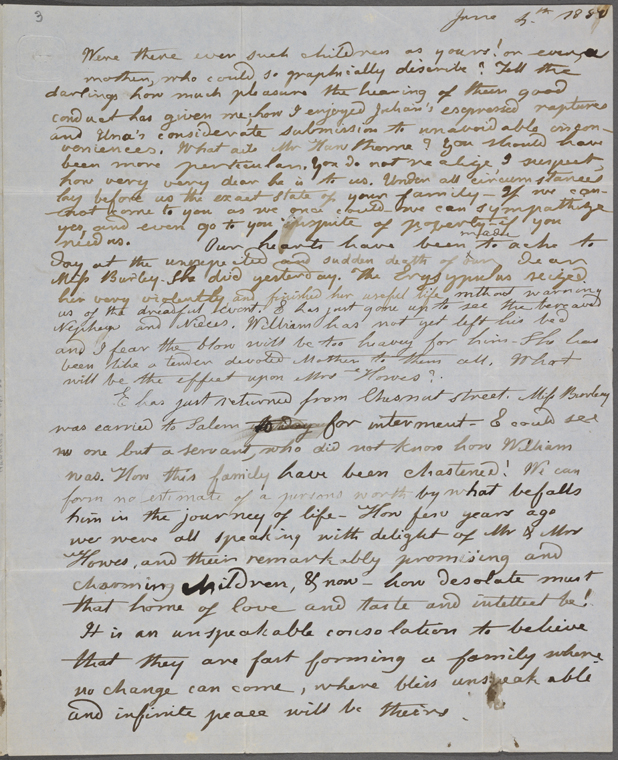 3
June 4th 1850
Were there ever such children as yours! or ever a
mother, who could so graphically discribe? Tell the
darlings how much pleasure the hearing of their good
conduct has given me; how I enjoyed Julian's expressed rapture
and Una's considerate submission to unavoidable incon-
veniences. What ails Mr Hawthorne? You should have
been more perticular. You do not realize I suspect,
how very very dear he is to us. Under all circumstances
lay before us the exact state of your family - If we can-
not come to you as we once could we can sympathize
yes, and even go to you inspite of poverty if you
need us. Our hearts have been made to ache to
day at the unexpected and sudden death of our dear
Miss Burley - She died yesterday. The Erysypulus seized
her very violently and finished her useful life without warning
us of the dreaful event. E has just gone up to see the bereaved
Nephew and Nieces. William has not yet left his bed
and I fear the blow will be too heavey for him - She has
been like a tender devoted Mother to them all. What
will be the effect upon Mrs Howes?
E has just returned from Chesnut street. Miss Burley
was carried to Salem today for interment - E could see
no one but a servant, who did not know how William
was. How this family have been chastened! We can
form no estimate of a persons worth by what befalls
him in the journey of life - How few years ago
we were all speaking with delight of Mr & Mrs
Howes, and their remarkably promising and
charming children, & now - how desolate must
that home of love and taste and intellect be!
It is an unspeakable consolation to believe
that they are fast forming a family where
no change can come, where bliss unspeakable
and infinite peace will be theirs.